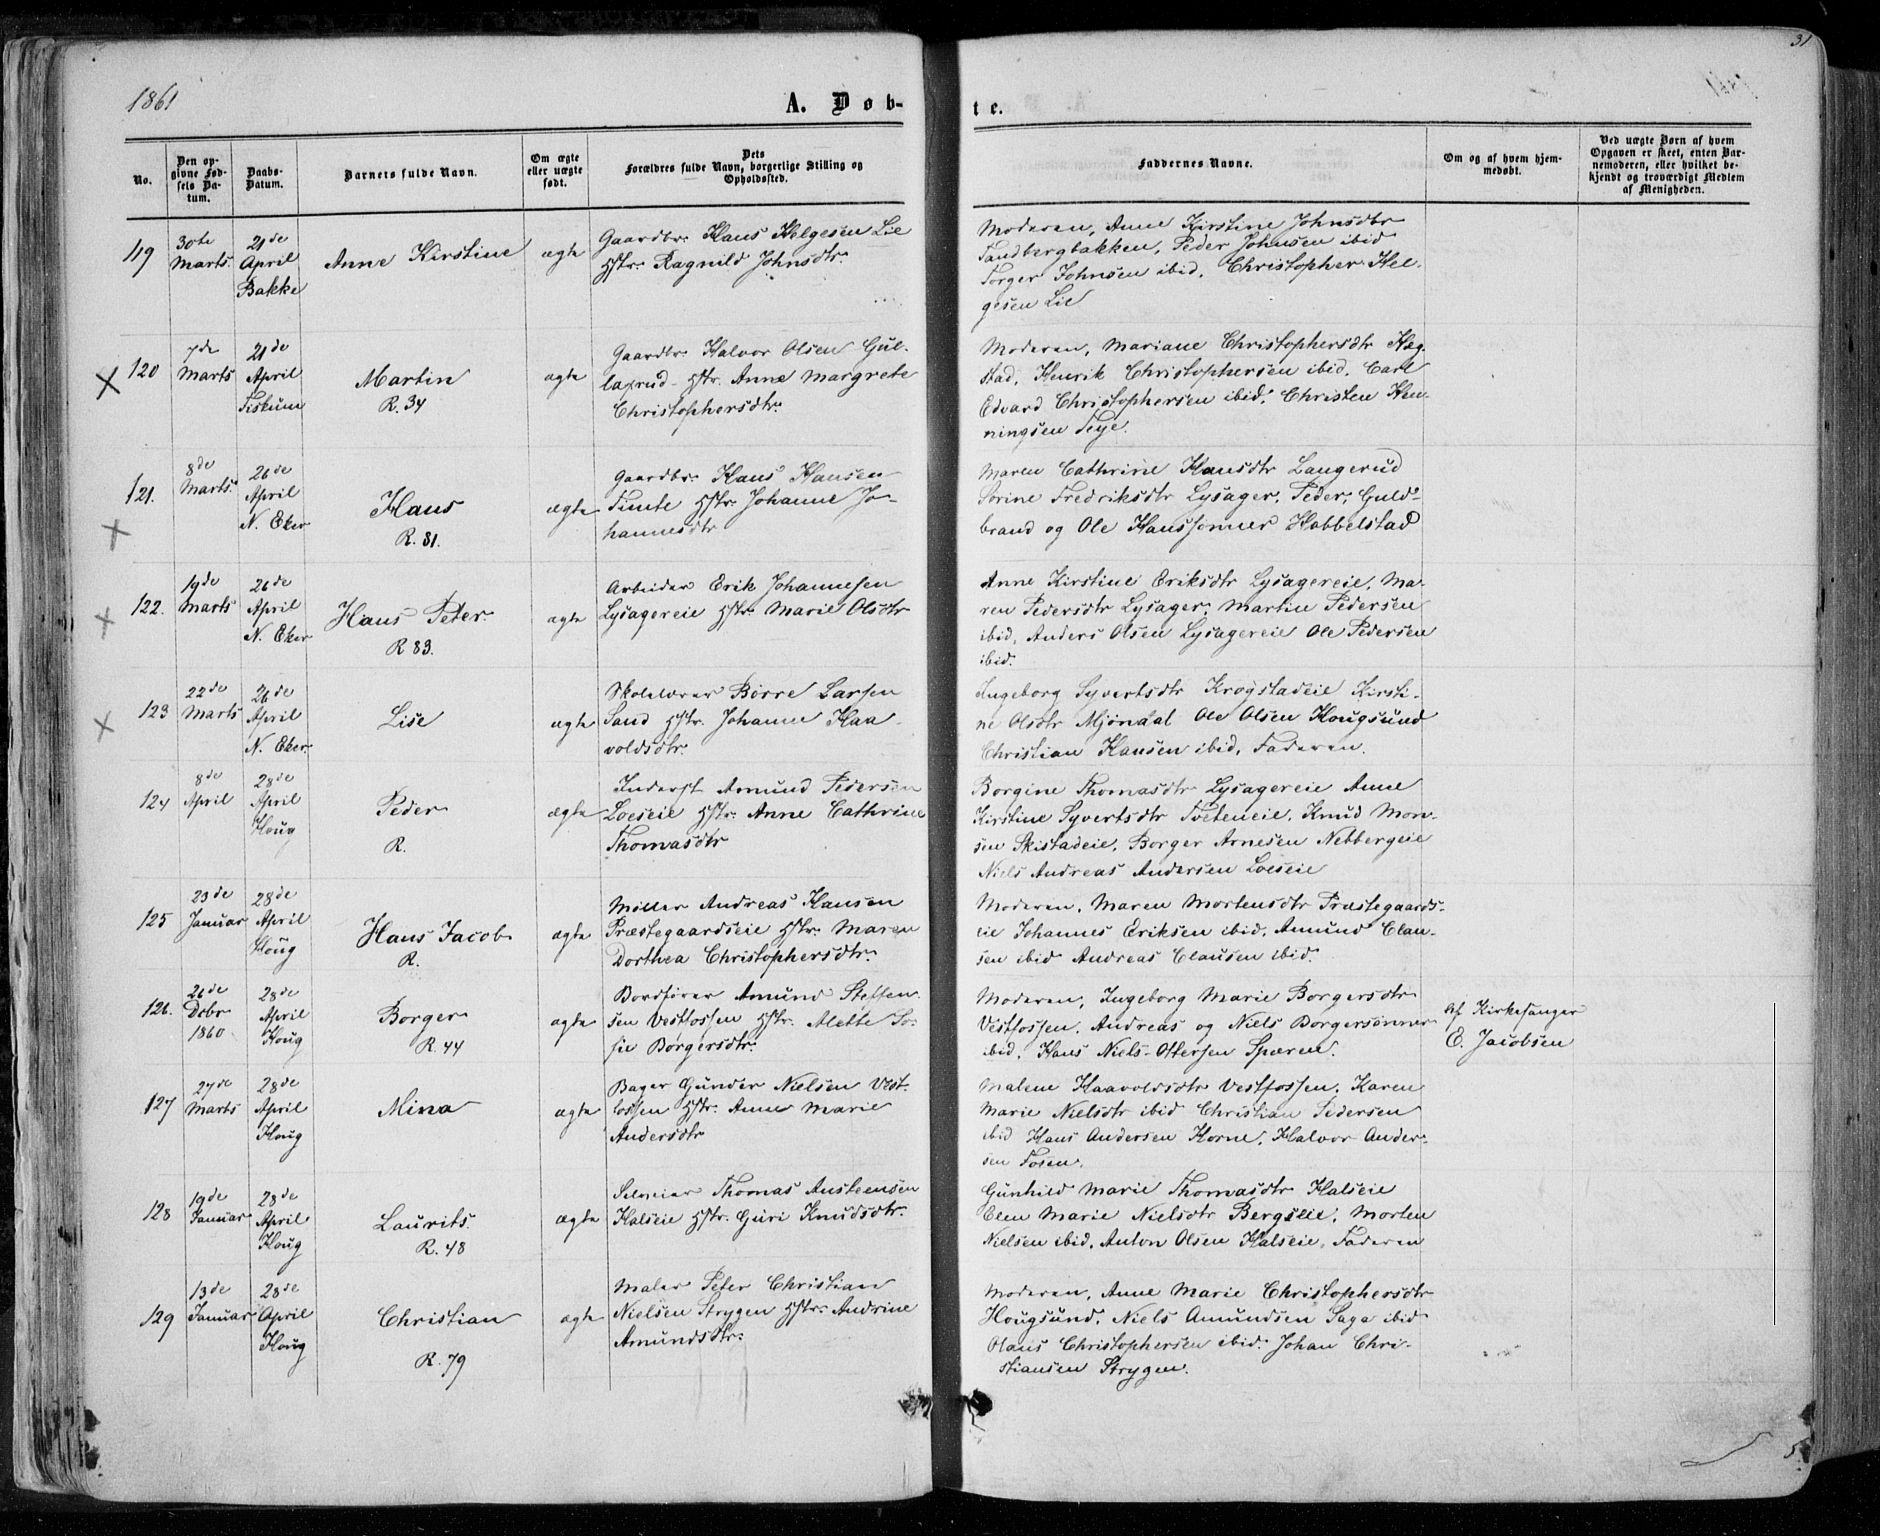 1861
31
A. Døb-
te.
No.
Den op-
givne Fød-
sels Da-
tum.
Daabs-
Datum.
Barnets fulde Navn.
Om ægte
eller uægte
født.
Dets
Forældres fulde Navn, borgerlige Stilling og
Opholdssted.
Faddernes Navne.
Om og af hvem hjem-
medøbt.
Ved uægte Børn af hvem
Opgaven er skeet, enten Bar-
nemoderen, eller hvilket be-
kjendt og troværdigt Medlem
af Menigheden.
119
30te
Marts.
21de
April
Bakke
Anne Kirstine
ægte
Gaardbr. Hans Helgesen Lie
Hstr. Ragnild Johnsdtr.
Moderen, Anne Kirstine Johnsdtr
Sandbergbakken, Peder Johnsen ibid
Torger Johnsen ibid. Christopher Hel-
gesen Lie
120
7de
Marts
21de
April
Fiskum
Martin
R. 34
ægte
Gaardbr. Halvor Olsen Gul-
laprud Hstr. Anne Margrete
Christophersdtr.
Moderen, Mariane Christophersdtr Hæg-
stad, Henrik Christophersen ibid. Carl
Edvard Christophersen ibid. Christen Hen-
ningsen Teye.
121.
8de
Marts.
26de
April
N. Eker
Hans
R. 81.
ægte
Gaardbr. Hans Hansen
Temte Hstr. Johanne Jo-
hannesdtr
Maren Cathrine Hansdtr Langerud
Sorine Fredriksdtr Lysager, Peder, Guld-
brand og Ole Hanssønner Hobbelstad
122.
19de
Marts
26de
April
N. Eker
Hans Peter
R 83.
ægte
Arbeider Erik Johannesen
Lysagereie Hstr. Marie Olsdtr
Anne Kirstine Eriksdtr Lysagereie, Ma-
ren Pedersdtr Lysager, Martin Pedersen
ibid, Anders Olsen Lysagereie Ole Pedersen
ibid.
123
22de
Marts
26de
April
N. Eker
Lise
ægte
Skolelærer Børre Larsen
Sand Hstr. Johanne Haa-
voldsdtr.
Ingeborg Syvertsdtr Krogstadeie Kirsti-
ne Olsdtr Mjøndal Ole Olsen Hougsund
Christian Hansen ibid, Faderen.
124
8de
April
28de
April
Houg
Peder
R.
ægte
Inderst Amund Pedersen
Loeseie Hstr. Anne Cathrine
Thomasdtr
Borgine Thomasdtr Lysagereie Anne
Kirstine Syvertsdtr Tveteneie, Knud Mon-
sen Skistadeie, Borger Arnesen Nebbergeie
Niels Andreas Andersen Loeseie
125
23de
Januar
28de
April
Houg
Hans Jacob
R.
ægte
Møller Andreas Hansen
Præstegaardseie Hstr. Maren
Dorthea Christophersdtr.
Moderen, Maren Mortensdtr Præstegaards-
eie Johannes Eriksen ibid, Amund Clau-
sen ibid Andreas Clausen ibid.
126.
26de
Dcbr
1860
28de
April
Houg
Borger
R. 44
ægte
Bordfører Amund Steffen-
sen Vestfossen Hstr. Alette So-
fie Borgersdtr.
Moderen, Ingeborg Marie Borgersdtr
Vestfossen, Andreas og Niels Borgersønner
ibid, Hans Niels-Ottersen Spæren.
af Kirkesanger
E. Jacobsen
127
27de
Marts
28de
April
Houg
Mina
ægte
Bager Gunder Nielsen Vest-
fossen Hstr. Anne Marie
Andersdtr
Malene Haavoldsdtr Vestfossen, Karen
Marie Nielsdtr ibid Christian Pedersen
ibid Hans Andersen Horne, Halvor Ander-
sen Fosen.
128
19de
Januar
28de
April
Houg
Laurits.
R. 48
ægte
Selveier Thomas Austeensen
Halseie Hstr. Guri Knudsdtr.
Gunhild Marie Thomasdtr Halseie
Elen Marie Nielsdtr Bergseie, Morten
Nielsen ibid, Anton Olsen Halseie, Faderen
129
13de
Januar
28de
April
Houg
Christian
R. 79
ægte
Maler Peter Christian
Nielsen Strygen Hstr. Andrine
Amundsdtr.
Moderen, Anne Marie Christophersdtr
Hougsund, Niels Amundsen Saga ibid
Olaus Christophersen ibid. Johan Chri-
stiansen Strygen.
5.